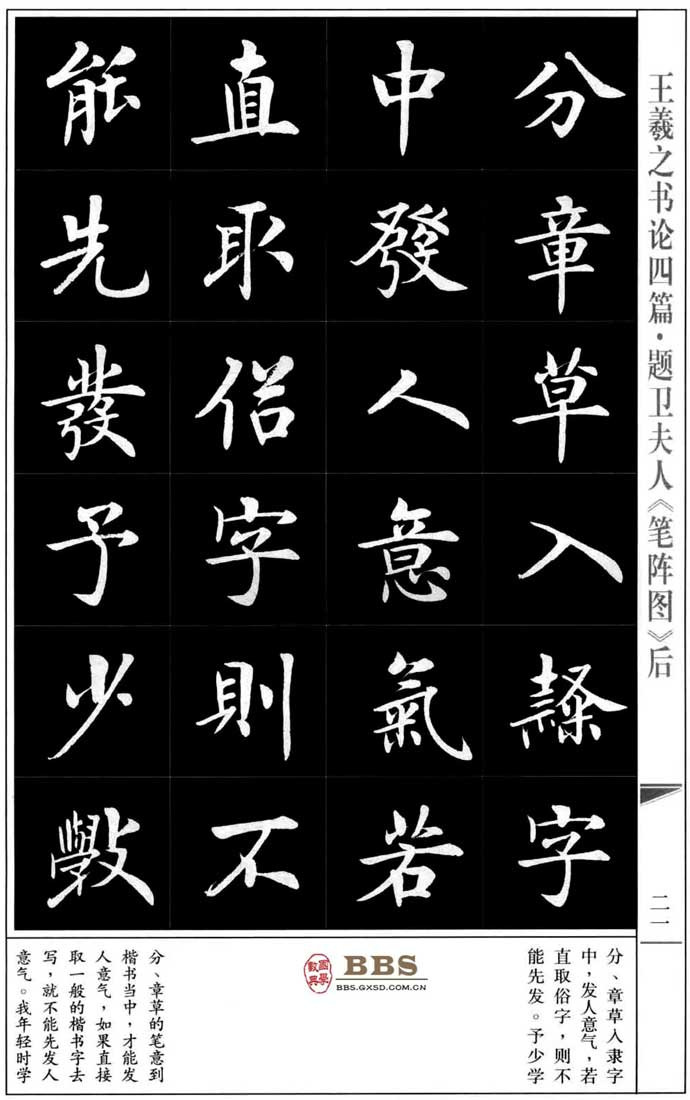 王羲之书论四篇·题卫夫人《笔阵图》后
二一
分章草入隸字
中發人意氣若
直取俗字則不
能先發予少學
分、章草入隶字
中，发人意气，若
直取俗字，则不
能先发。予少学
國學數典
BBS
BBS.GXSD.COM.CN
分、章草的笔意到
楷书当中，才能发
人意气，如果直接
取一般的楷书字去
写，就不能先发人
意气。我年轻时学